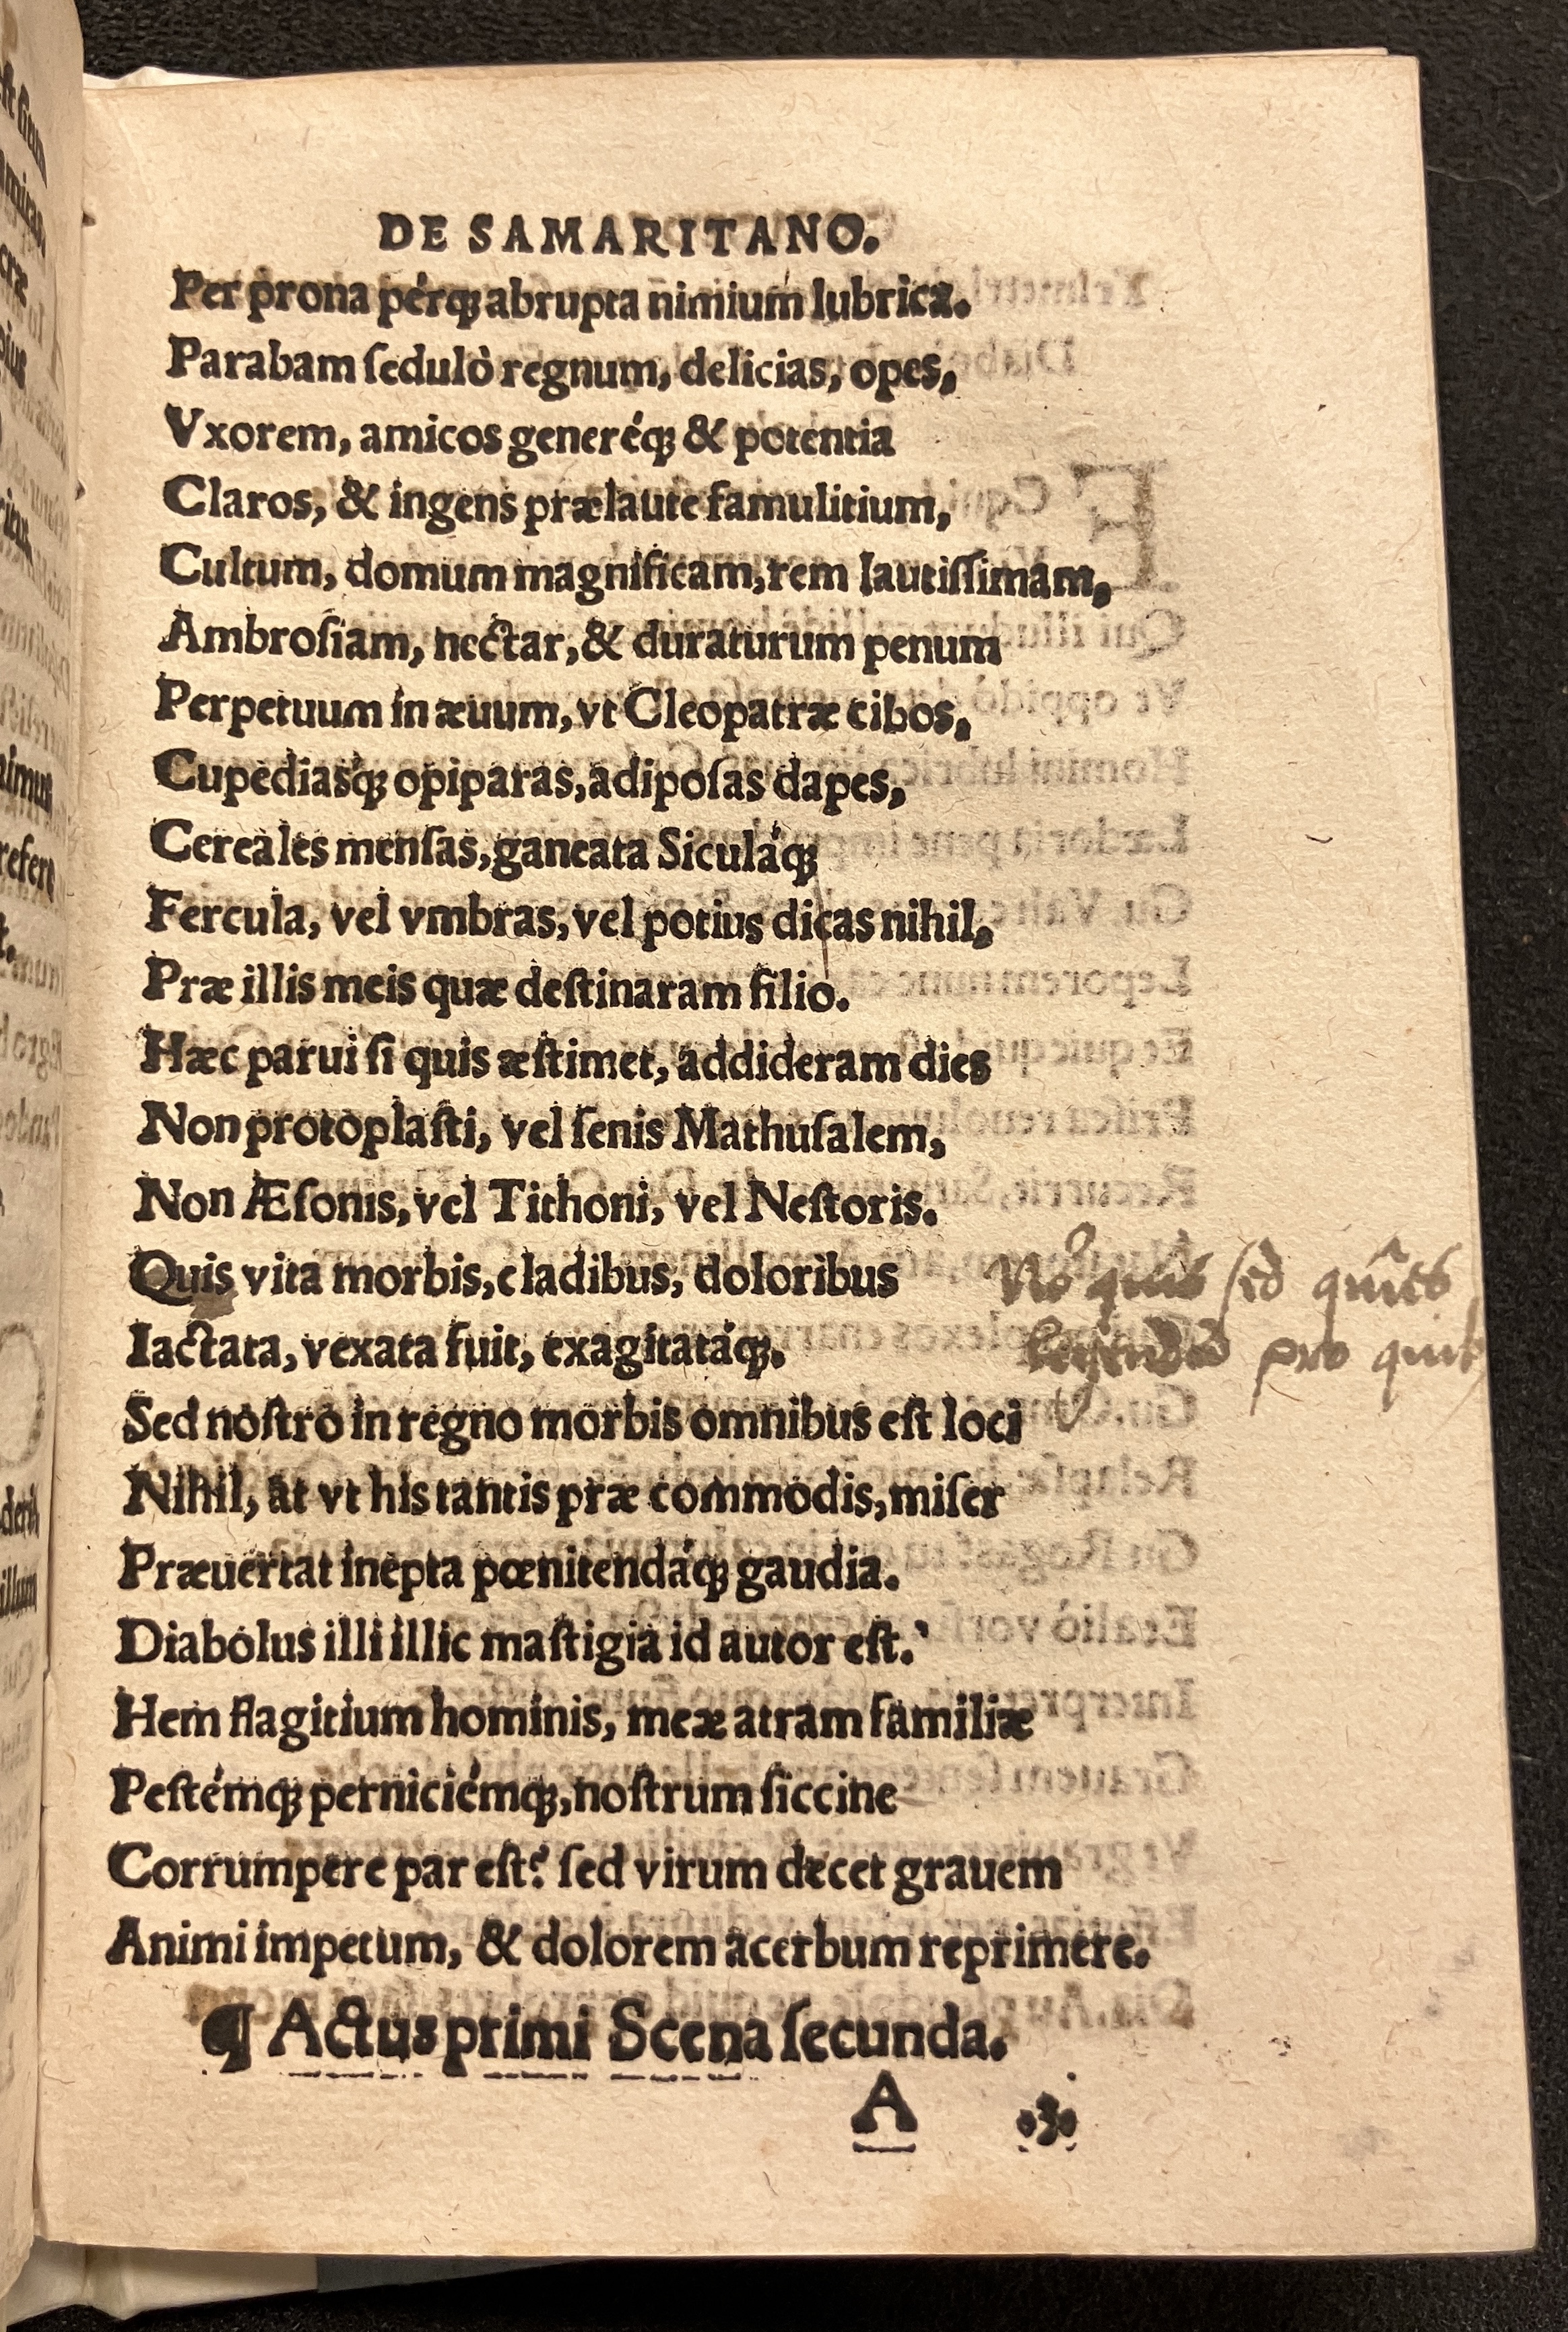 DE SAMARITANO.
Per prona pérq; abrupta nimium lubrica.
Parabam ſedulò regnum, delicias, opes,
Vxorem, amicos generéq; & potentia
Claros, & ingens prælaute famulitium,
Cultum, domum magnificam, rem lautiſſimam,
Ambroſiam, nectar, & duraturum penum
Perpetuum in æuum, vt Cleopatræ cibos,
Cupediasq́; opiparas, adipoſas dapes,
Cereales menſas, ganeata Siculáq;
Fercula, vel vmbras, vel potius dicas nihil,
Præ illis meis quæ deſtinaram filio.
Hæc parui ſi quis æſtimet, addideram dies
Non protoplaſti, vel ſenis Mathuſalem,
Non Æſonis, vel Tithoni, vel Neſtoris.
Quis vita morbis, cladibus, doloribus
No quis sed
Iactata, vexata fuit, exagitatáq;.
pro quib
Sed noſtro in regno morbis omnibus eſt loci
Nihil, at vt his tantis præ commodis, miſer
Præuertat inepta pœnitendáq; gaudia.
Diabolus illi illic maſtigia id autor eſt.
Hem flagitium hominis, meæ atram familiæ
Peſtémq; perniciémq;, noſtrum ſiccine
Corrumpere par eſt? ſed virum decet grauem
Animi impetum, & dolorem acerbum reprimere.
¶ Actus primi Scena ſecunda.
A 3